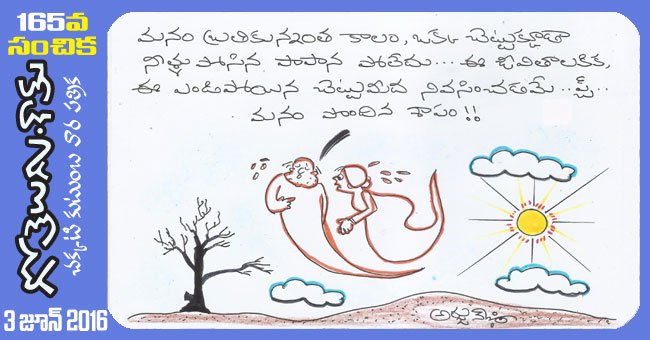 165వ
సంచిక
గోతెలుగు.కామ్
చక్కటి కుటుంబ వార పత్రిక
3 జూన్ 2016
మనం బ్రతికున్నంత కాలం, ఒక్క చెట్టుక్కూడా
నీళ్ళు పోసిన పాపాన పోలేదు... ఈ జీవితాలకిక,
ఈ ఎండిపోయిన చెట్టుమీద నివసించడమే.. ప్చ్..
మనం పొందిన శాపం!!